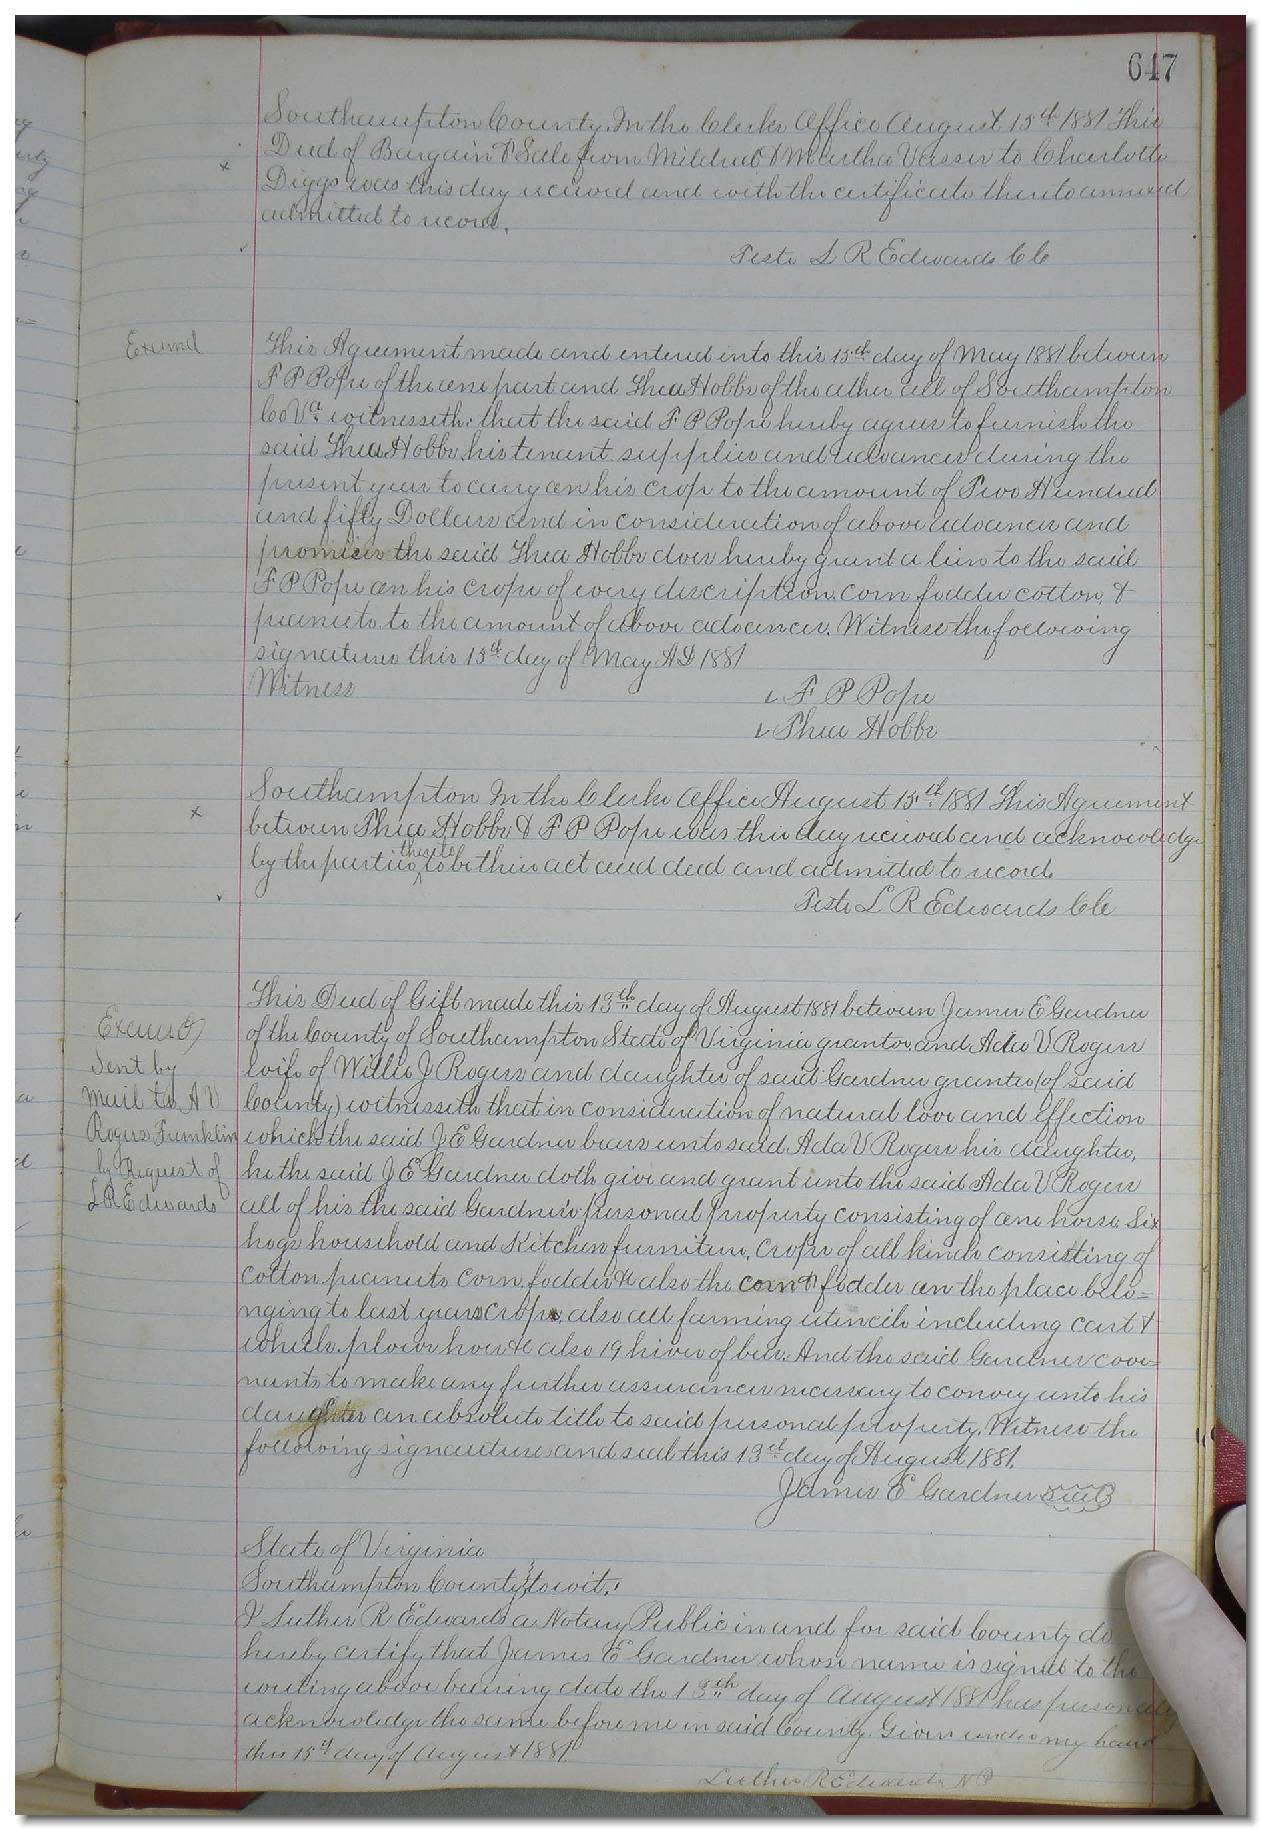 647
Southampton County. In the Clerks Office August 15th 1881 This
Deed of Bargain & Sale from Mildred & Martha Vasser to Charlotte
x
Diggs was this day received and with the certificate thereto annexed
admitted to record.
Teste L R Edwards CC
Examd
This Agreement made and entered into this 15th day of May 1881 between
F P Pope of the one part and Shea Hobbs of the other all of Southampton
Co Va. witnesseth: that the said F P Pope hereby agrees to furnish the
said Shea Hobbs his tenant supplies and advances during the
present year to carry on his crop to the amount of Two Hundred
and fifty Dollars and in consideration of above advances and
promises the said Shea Hobbs does hereby grant a lien to the said
F P Pope on his crops of every description. corn fodder cotton, &
peanuts. to the amount of above advances. Witness the following
signatures this 15th day of May AD 1881
Witness
F P Pope
Shea Hobbs
Southampton In the Clerks Office August 15th 1881 This Agreement
x
between Shea Hobbs & F P Pope was this day received and acknowledge
by the parties thereto to be their act and deed and admitted to record
Teste L R Edwards CC
This Deed of Gift made this 13th day of August 1881 between James E Gardner
of the County of Southampton State of Virginia grantor and Ada V Rogers
wife of Willie J Rogers and daughter of said Gardner grantee (of said
County) witnesseth that in consideration of natural love and effection
which the said J E Gardner bears unto said Ada V Rogers his daughter,
he the said J E Gardner doth give and grant unto the said Ada V Rogers
all of his the said Gardner's personal property consisting of one horse Six
hogs household and Kitchen furniture, crops of all kinds consisting of
cotton peanuts corn fodder &c also the corn & fodder on the place belo=
nging to last years crops, also all farming utencils including cart &
wheels. plows hoes &c also 19 hives of bees. And the said Gardner cove=
nants to make any further assurances necessary to convey unto his
daughter an absolute title to said personal property. Witness the
following signature and seal this 13th day of August 1881.
James E Gardner Seal
Sent by
Mail to A V
Rogers Franklin
by Request of
L R Edwards
State of Virginia
Southampton County, to wit:
I Luther R Edwards a Notary Public in and for said County do
hereby certify that James E Gardner whose name is signed to the
writing above bearing date the 13th day of August 1881 has personally
acknowledge the same before me in said County. Given under my hand
this 15th day of August 1881
Luther R Edwards N P